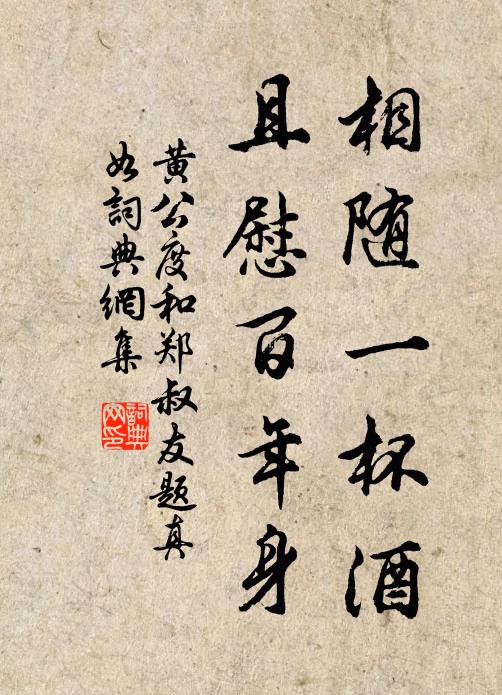 相随一杯酒
且慰百年身
黄公度和郑叔友题真
如詞典網集
詞典
网印